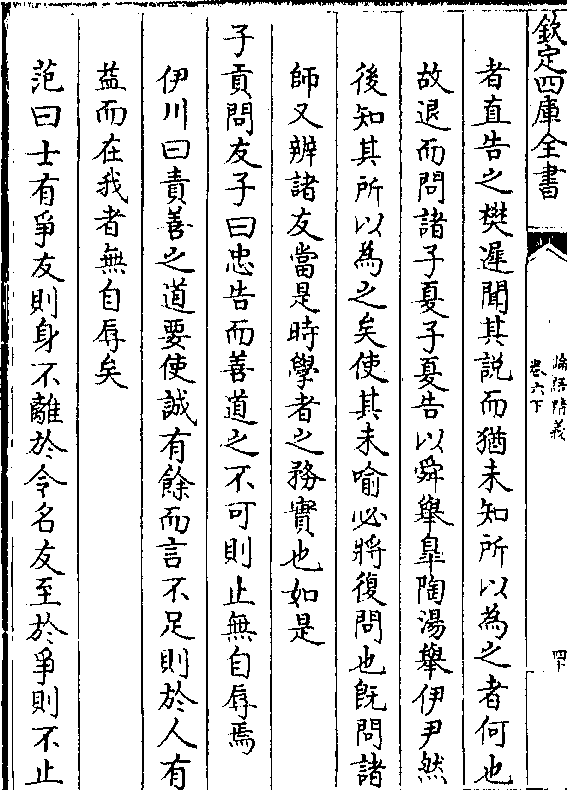 欽定四庫全書
論語精義
卷六下
四十
者直告之樊遲聞其説而猶未知所以為之者何也
故退而問諸子夏子夏告以舜舉臯陶湯舉伊尹然
後知其所以為之矣使其未喻必將復問也既問諸
師又辨諸友當是時學者之務實也如是
子貢問友子曰忠告而善道之不可則止無自辱焉
伊川曰責善之道要使誠有餘而言不足則於人有
益而在我者無自辱矣
范曰士有爭友則身不離於令名友至於爭則不止